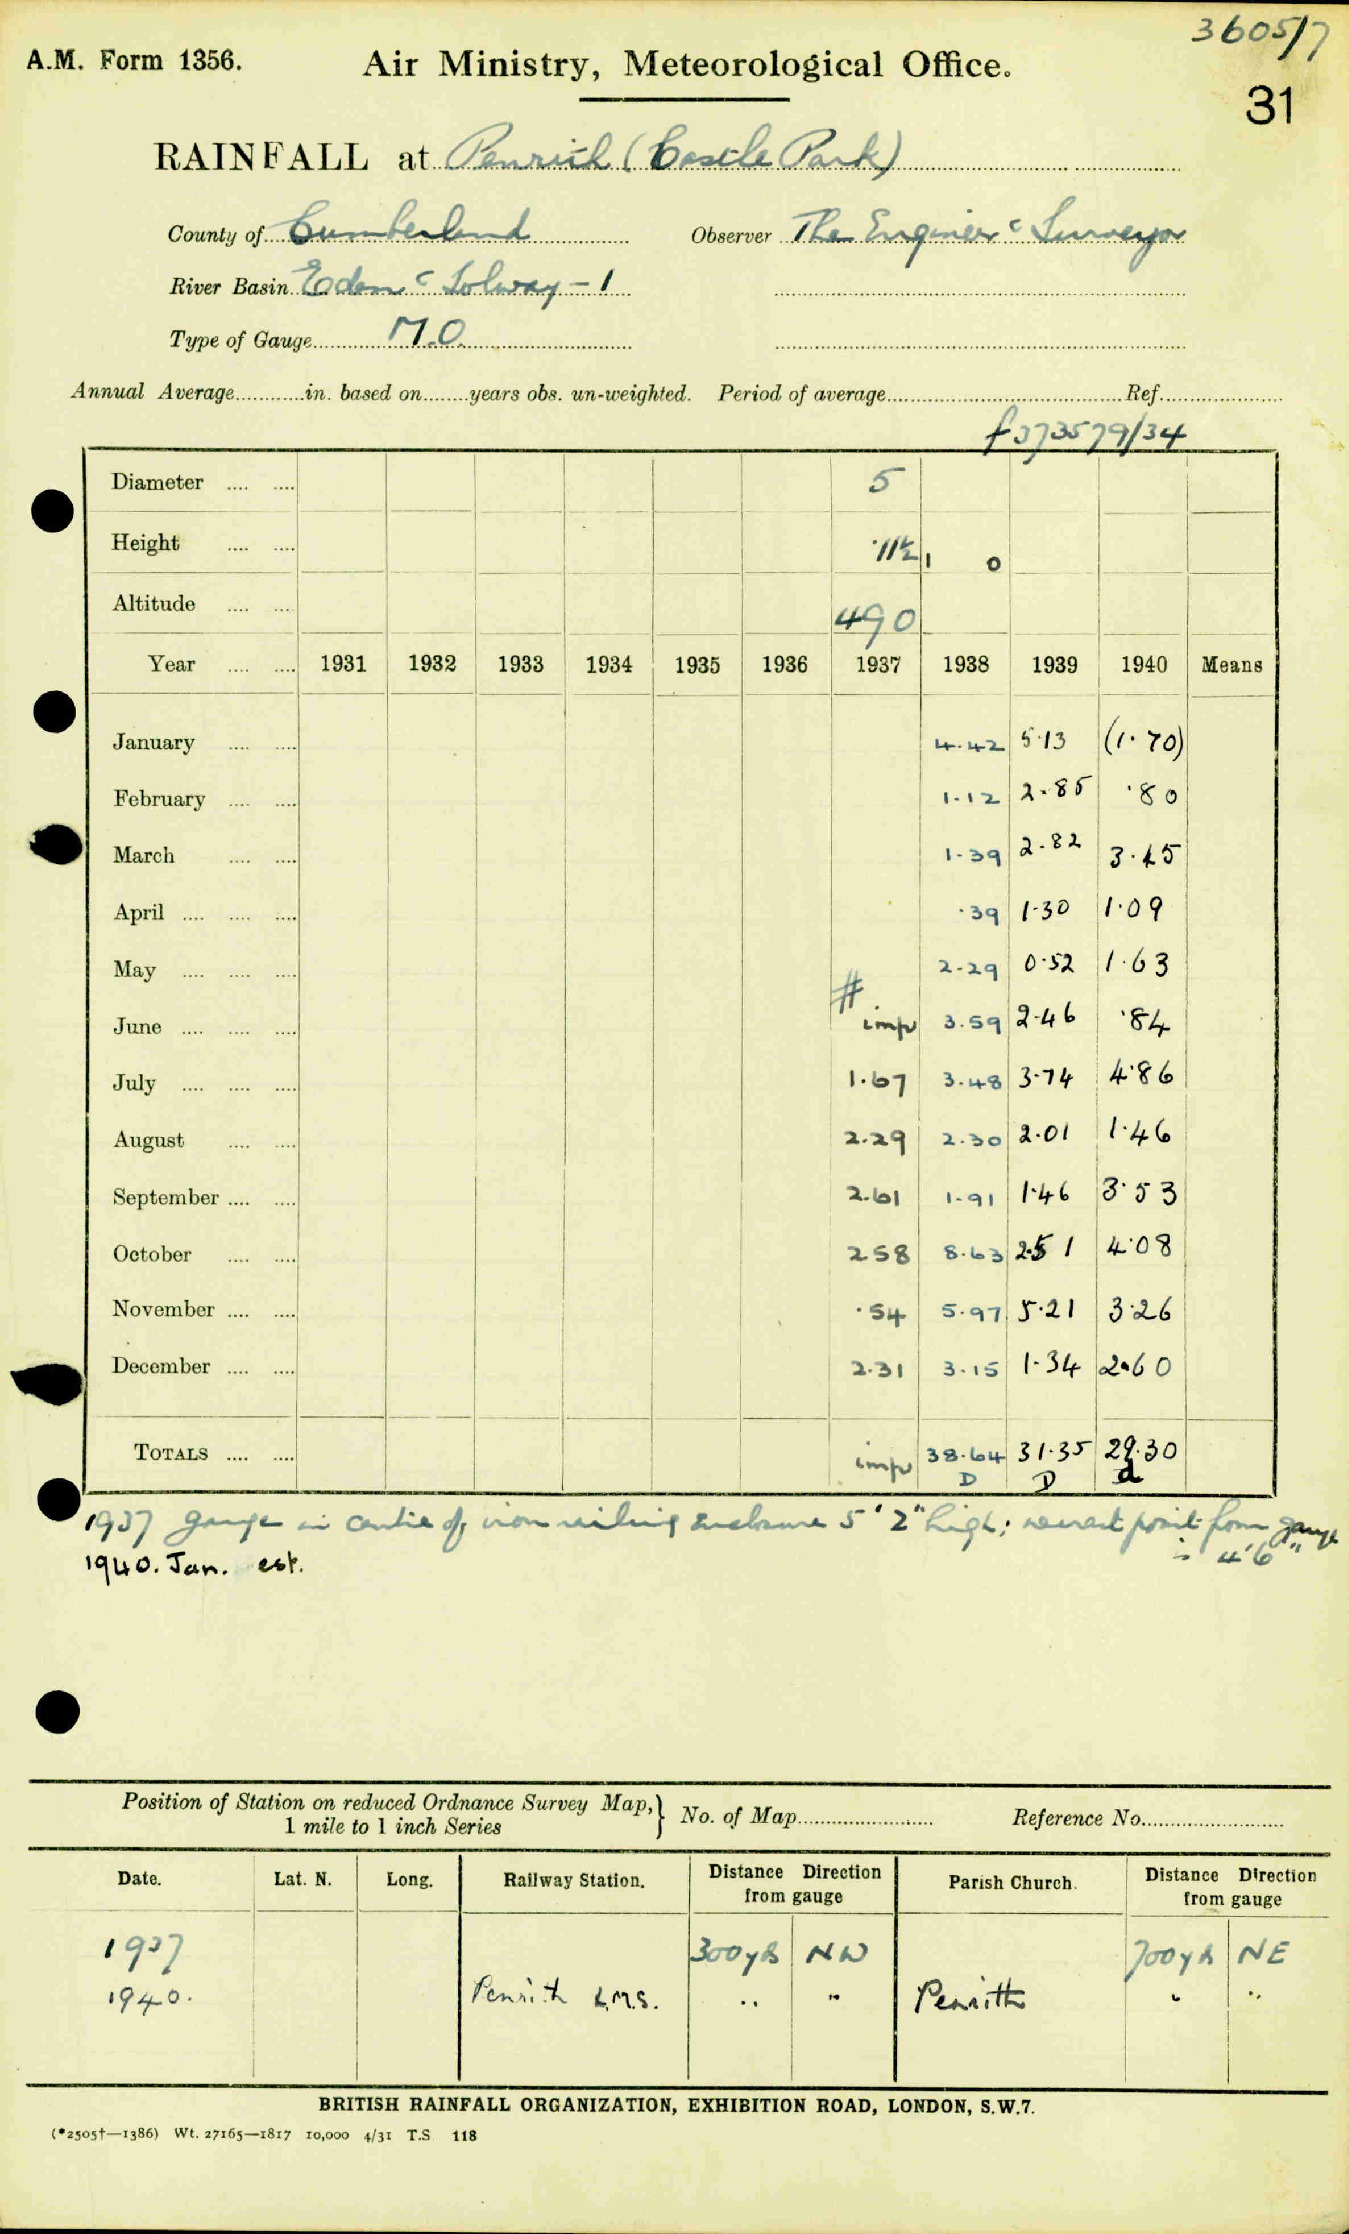 3605/7
A.M. Form 1356. Air Ministry, Meteorological Office.
31
RAINFALL at Penrith (Castle Park)
County of Cumberland Observer The Engineer & Surveyor
River Basin Eden & Solway - 1
Type of Gauge M.O.
Annual Average in. based on years obs. un-weighted. Period of average Ref.
f373579/34
Diameter 5
Height ·11½ 1 0
Altitude 490
Year 1931 1932 1933 1934 1935 1936 1937 1938 1939 1940 Means
January 4.42 5.13 (1.70)
February 1.12 2.85 .80
March 1.39 2.82 3.45
April .39 1.30 1.09
May 2.29 0.52 1.63
June # imp 3.59 2.46 .84
July 1.67 3.48 3.74 4.86
August 2.29 2.30 2.01 1.46
September 2.61 1.91 1.46 3.53
October 2.58 8.63 2.51 4.08
November .54 5.97 5.21 3.26
December 2.31 3.15 1.34 2.60
TOTALS imp 38.64 31.35 29.30
D D d
1937 gauge in centre of iron railing enclosure 5' 2" high; nearest point from gauge
is 4'6"
1940. Jan. est.
Position of Station on reduced Ordnance Survey Map, 1 mile to 1 inch Series } No. of Map Reference No.
Date. Lat. N. Long. Railway Station. Distance Direction from gauge Parish Church. Distance Direction from gauge
1937 300 yds NW 700 yds NE
1940. Penrith L.M.S. " " Penrith " "
BRITISH RAINFALL ORGANIZATION, EXHIBITION ROAD, LONDON, S.W.7.
(*2505†—1386) Wt. 27165—1817 10,000 4/31 T.S 118